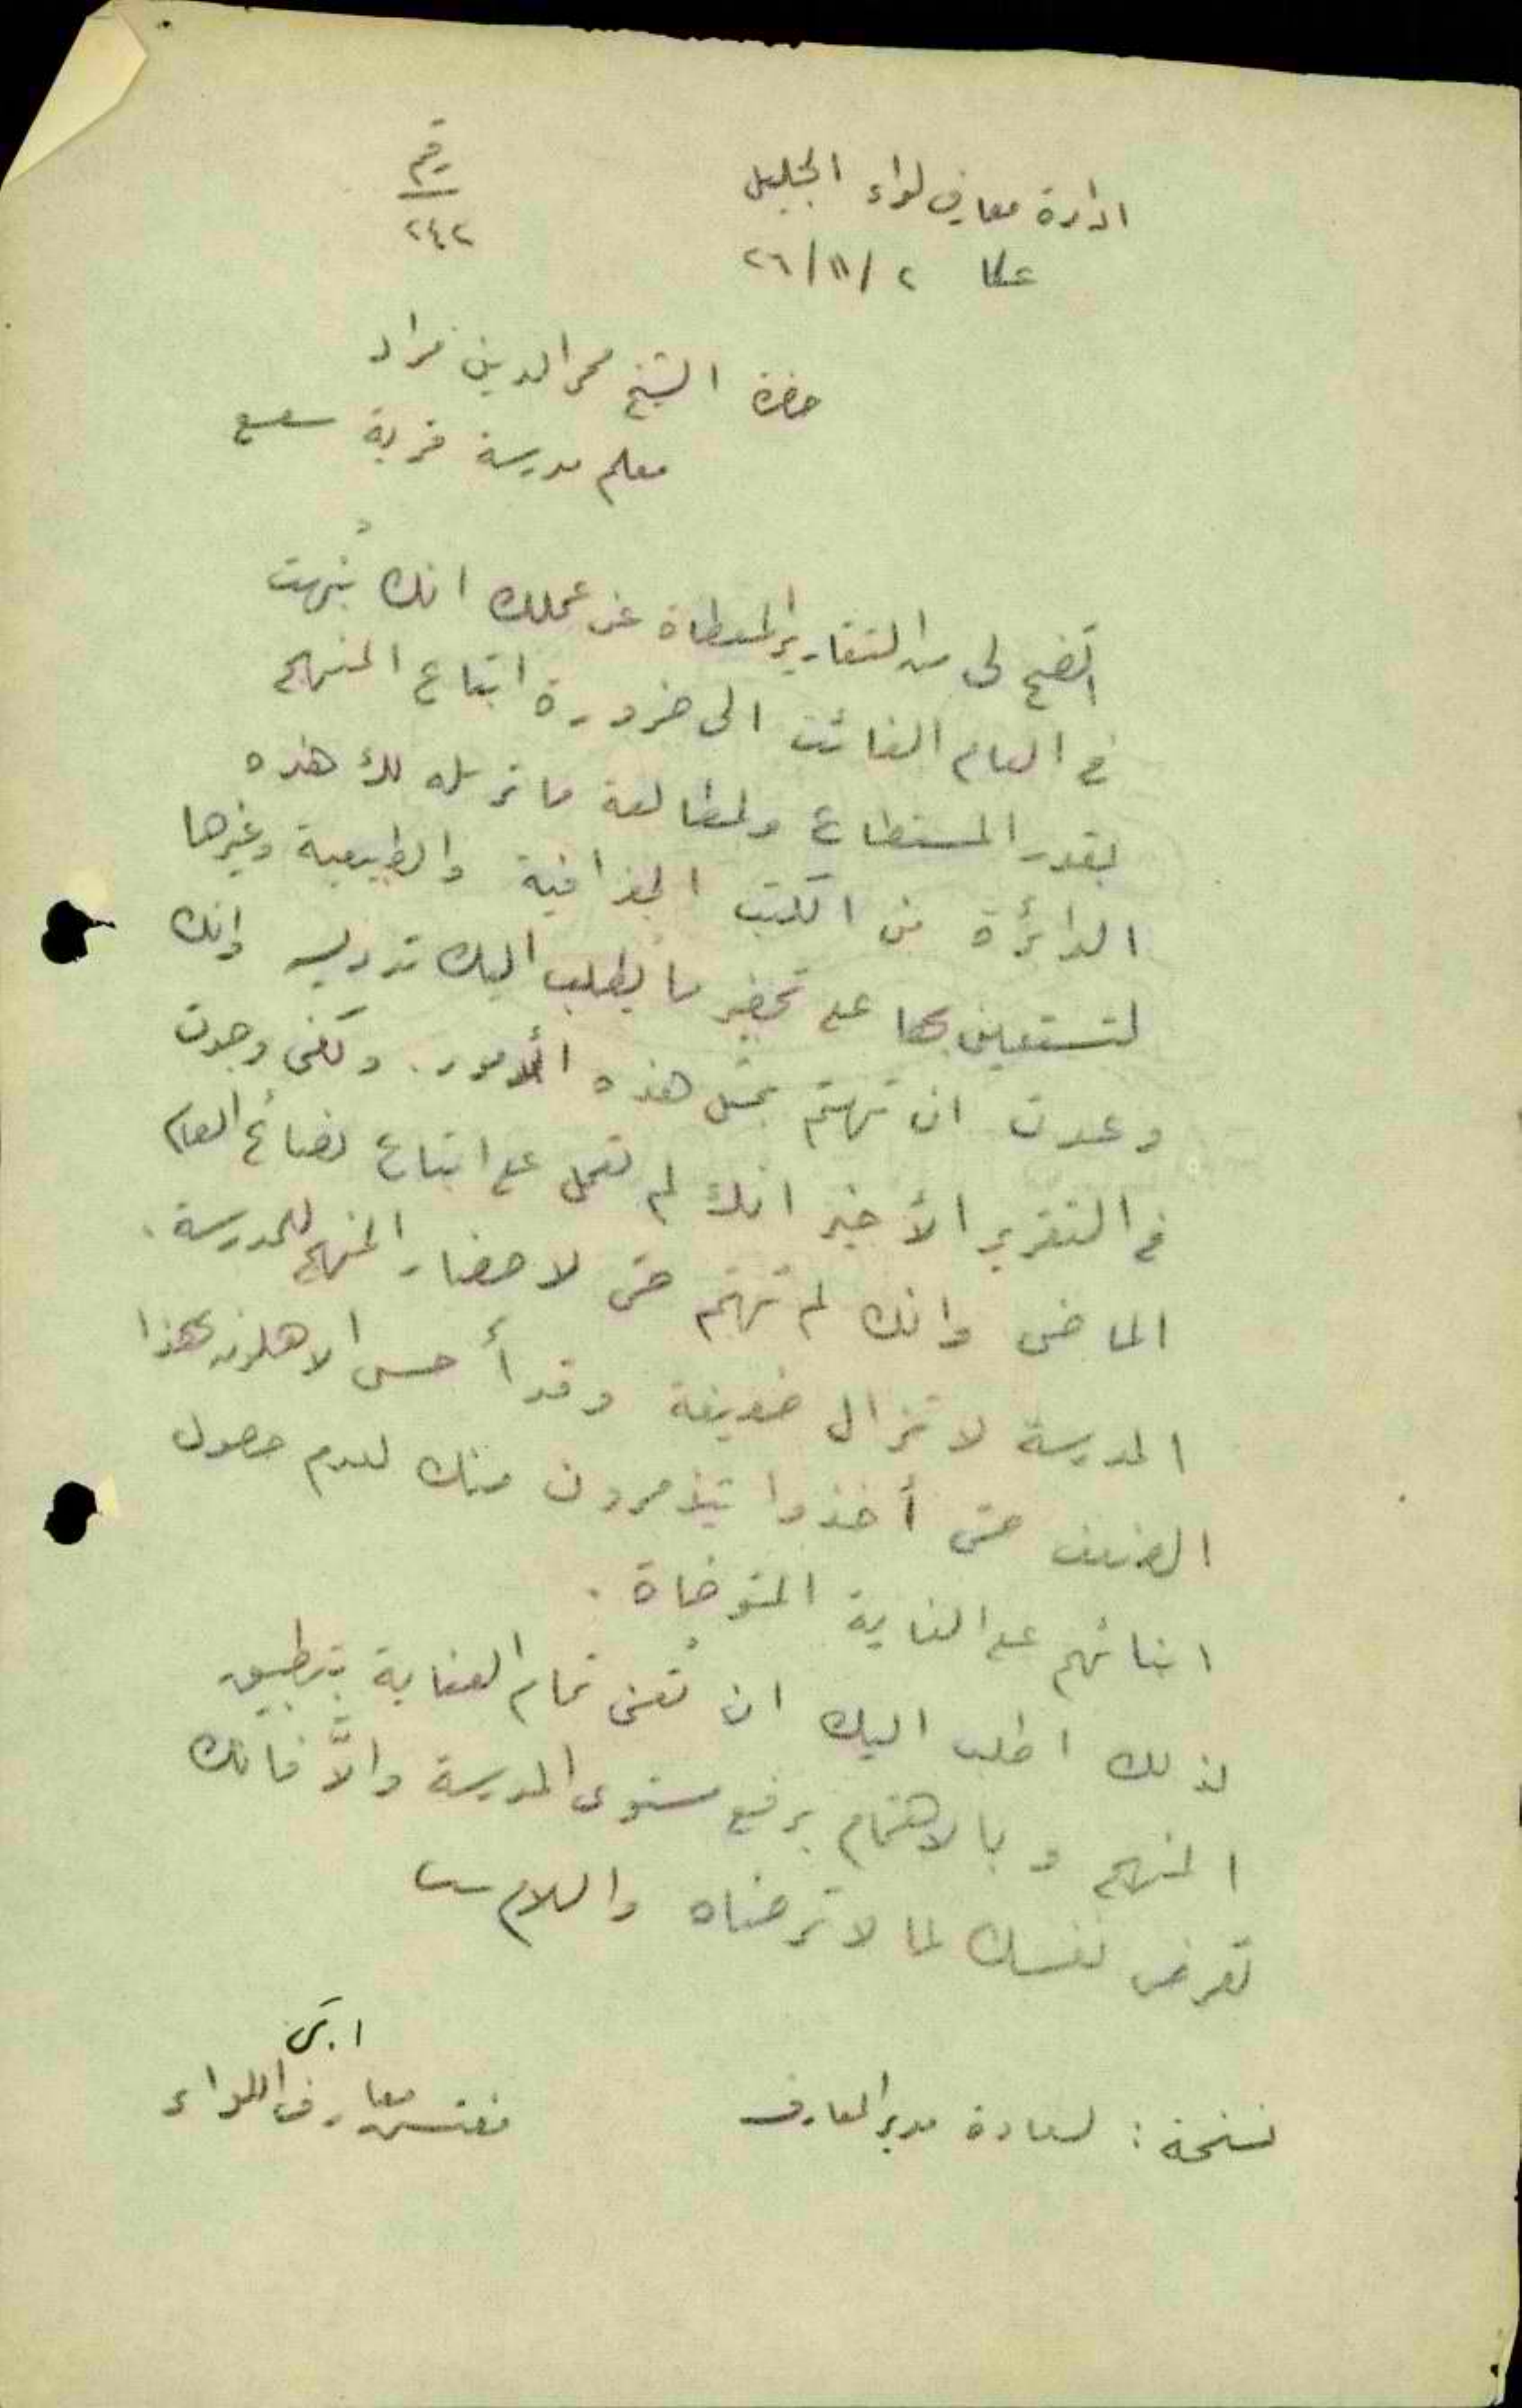 ادارة معارف لواء الجليل
عكا ٢/١١/٢٦
رقم
٢٤٢
حضرة الشيخ محي الدين مراد
معلم مدرسة قرية سعسع
اتضح لي من التقارير المعطاة عن عملك انك نُبهت
في العام الفائت الى ضرورة اتباع المنهج
بقدر المستطاع ولمطالعة ما ترسله لك هذه
الدائرة من الكتب الجغرافية والطبيعية وغيرها
لتستعين بها على تحضير ما يطلب اليك تدريسه وانك
وعدت ان تهتم بمثل هذه الأمور. ولكني وجدت
في التقرير الأخير انك لم تعمل على اتباع نصائح العام
الماضي وانك لم تهتم حتى لاحضار المنهج للمدرسة.
المدرسة لا تزال ضعيفة وقد أحس الاهلون بهذا
الضعف حتى أخذوا يتذمرون منك لعدم حصول
ابنائهم على الغاية المتوخاة.
لذلك اطلب اليك ان تُعنى تمام العناية بتطبيق
المنهج وبالاهتمام برفع مستوى المدرسة والاَّ فانك
تعرض نفسك لما لا ترضاه والسلام
مفتش معارف اللواء
نسخة: لسعادة مدير المعارف